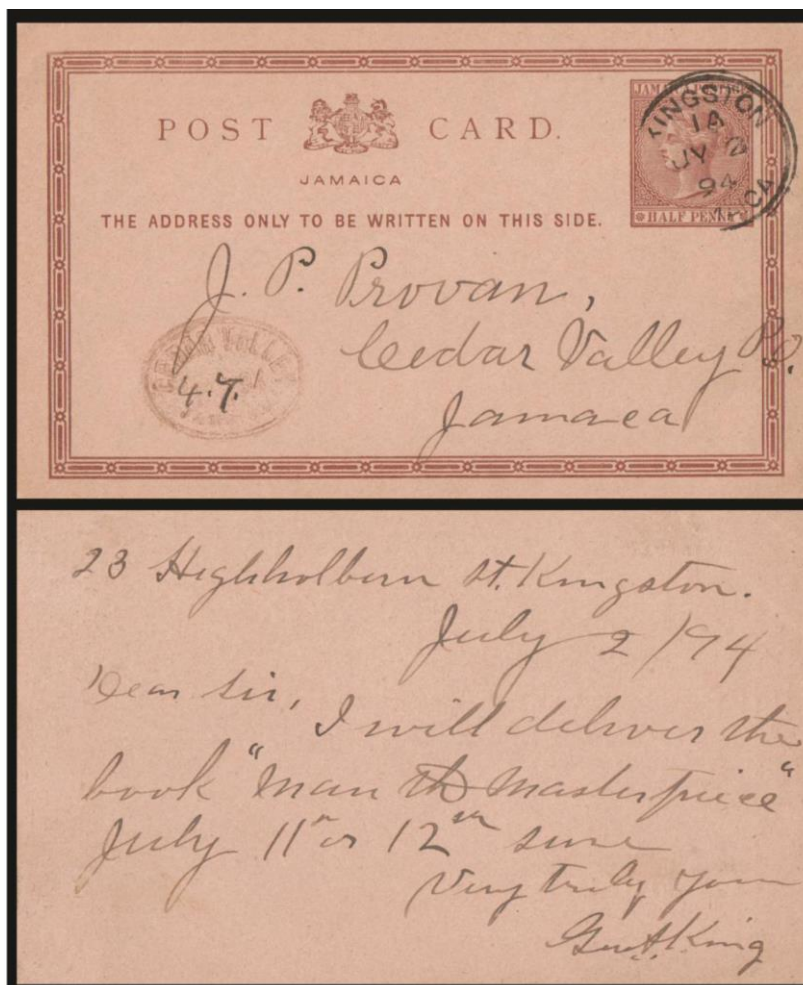 POST CARD.
JAMAICA
THE ADDRESS ONLY TO BE WRITTEN ON THIS SIDE.
HALF PENNY
KINGSTON
1A
JY 2
94
J. P. Provan,
Cedar Valley P.O.
Jamaica
VALLEY
4.7.
23 Highholburn St. Kingston.
July 2/94
Dear Sir,
I will deliver the
book "Man the Masterpiece"
July 11th or 12th sure
Very truly yours
Geo. A. King